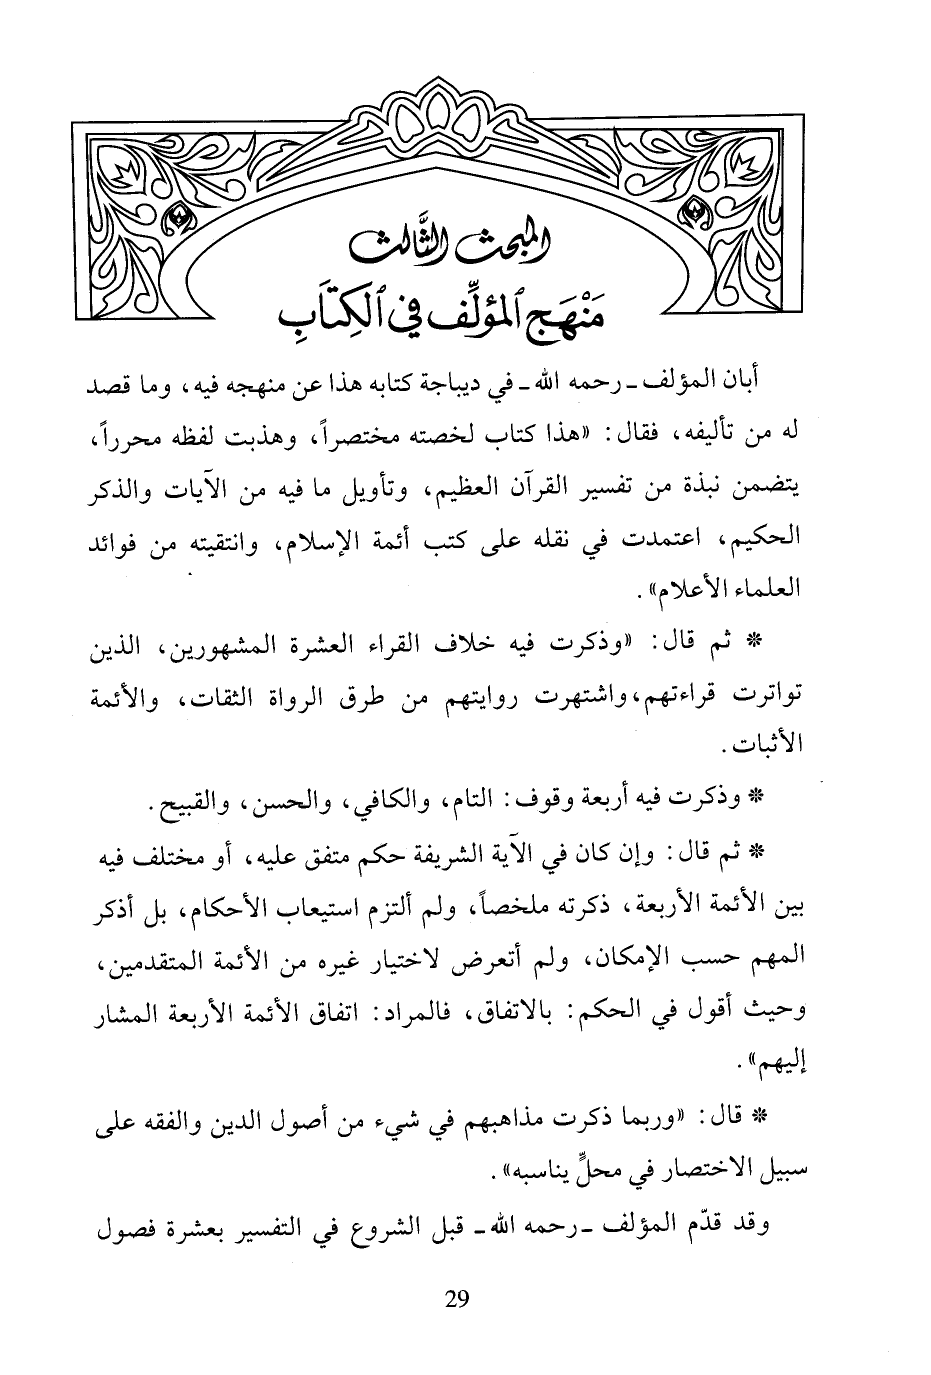 المبحث الثَّالث
مَنْهَج المؤلِّف في الكِتَابِ
أبان المؤلف ـ رحمه الله ـ في ديباجة كتابه هذا عن منهجه فيه، وما قصد
له من تأليفه، فقال: «هذا كتاب لخصته مختصراً، وهذبت لفظه محرراً،
يتضمن نبذة من تفسير القرآن العظيم، وتأويل ما فيه من الآيات والذكر
الحكيم، اعتمدت في نقله على كتب أئمة الإسلام، وانتقيته من فوائد
العلماء الأعلام».
* ثم قال: «وذكرت فيه خلاف القراء العشرة المشهورين، الذين
تواترت قراءتهم، واشتهرت روايتهم من طرق الرواة الثقات، والأئمة
الأثبات.
* وذكرت فيه أربعة وقوف: التام، والكافي، والحسن، والقبيح.
* ثم قال: وإن كان في الآية الشريفة حكم متفق عليه، أو مختلف فيه
بين الأئمة الأربعة، ذكرته ملخصاً، ولم ألتزم استيعاب الأحكام، بل أذكر
المهم حسب الإمكان، ولم أتعرض لاختيار غيره من الأئمة المتقدمين،
وحيث أقول في الحكم: بالاتفاق، فالمراد: اتفاق الأئمة الأربعة المشار
إليهم».
* قال: «وربما ذكرت مذاهبهم في شيء من أصول الدين والفقه على
سبيل الاختصار في محلٍّ يناسبه».
وقد قدّم المؤلف ـ رحمه الله ـ قبل الشروع في التفسير بعشرة فصول
29